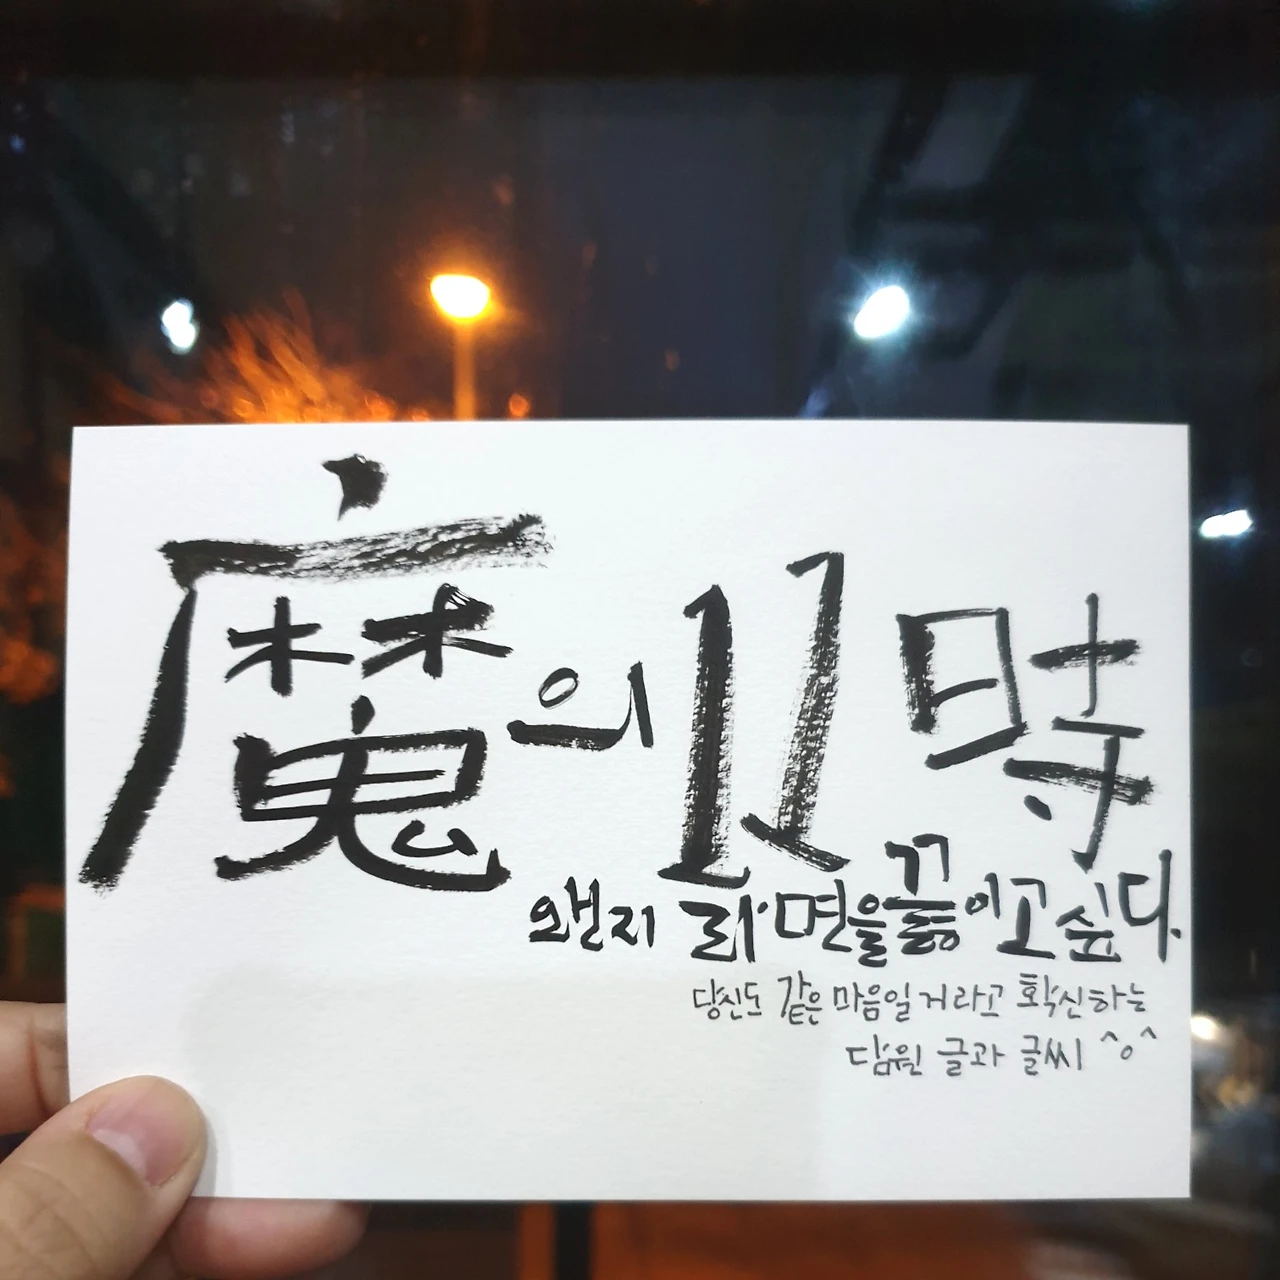 魔의 11時
왠지 라면을 끓이고 싶다.
당신도 같은 마음일 거라고 확신하는
담원 글과 글씨 ^o^